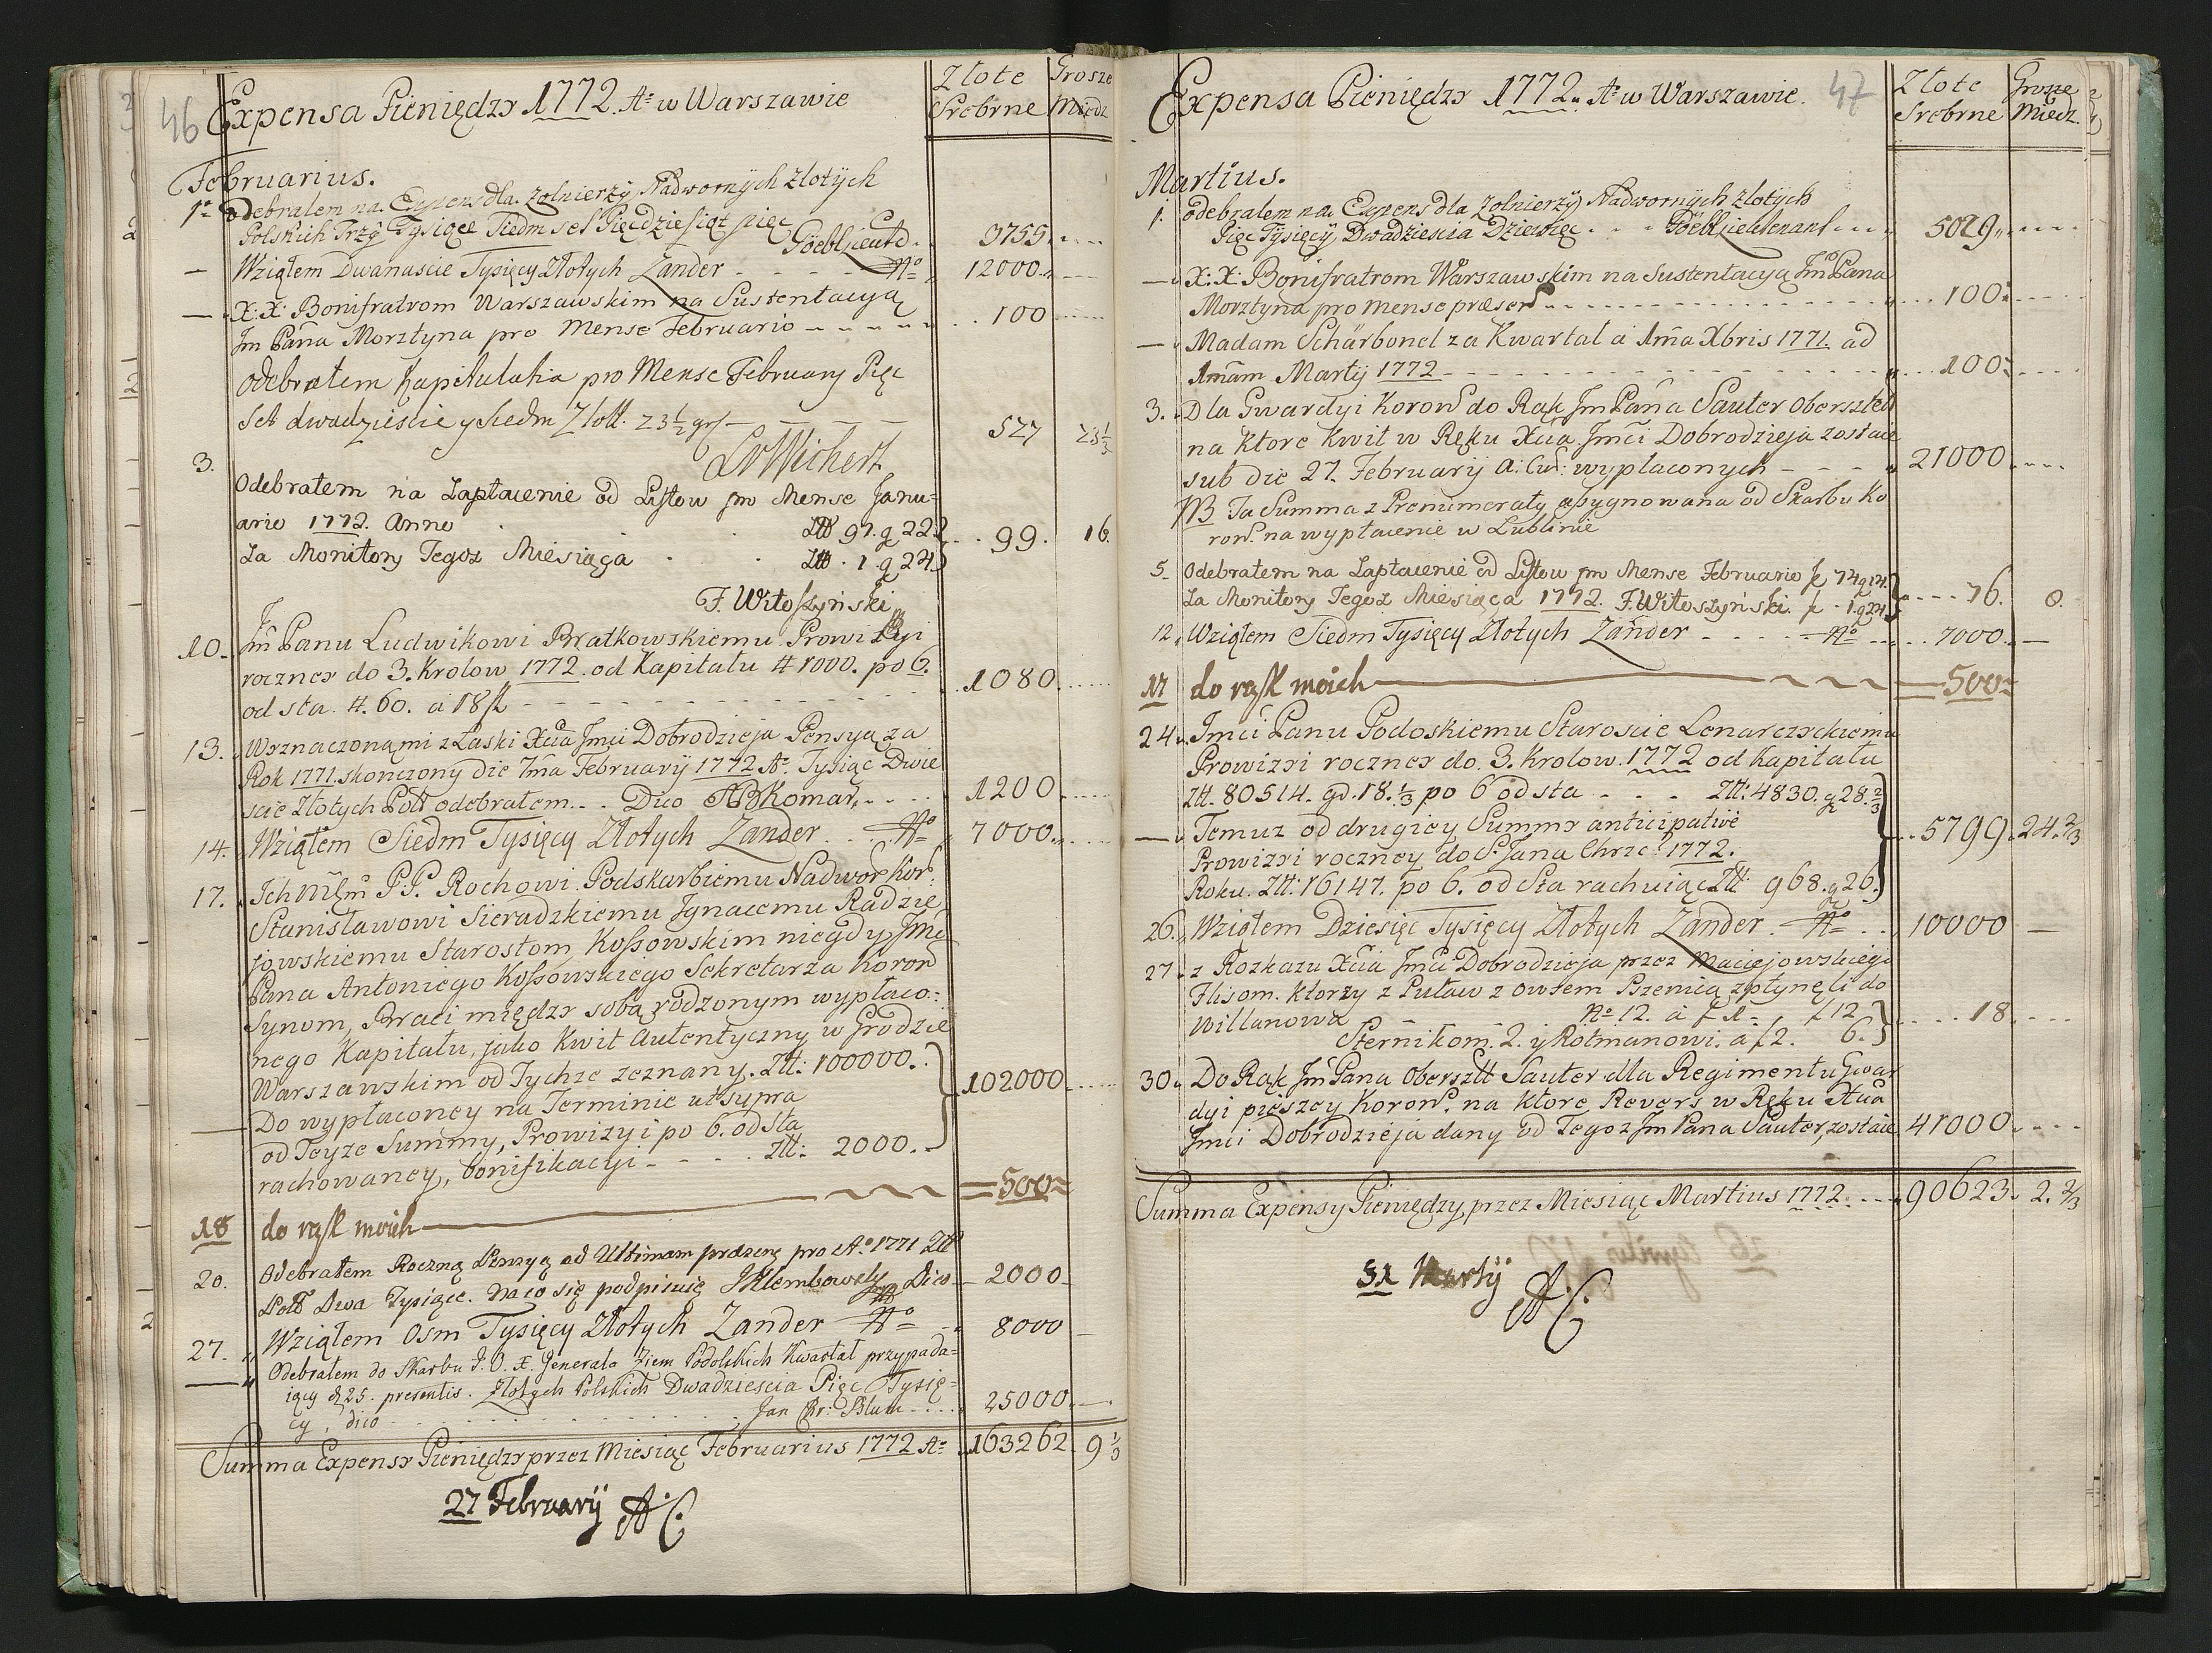 46 Expensa Pieniędzy 1772. Aº w Warszawie
Złote Srebrne
Grosze Miedz
Februarius.
1º odebrałem na Expens dla żołnierzÿ Nadwornÿch złotÿch
Polskich Trzÿ Tÿsiące Siedm set Pięcdziesiąt pięc Göebl Lieutd. 3755
— Wziąłem Dwanascie Tysięcy Złotych Zander - - - - Aº 12000
— X: X: Bonifratrom Warszawskim na Sustentacyą
Jm Pana Morztyna pro Mense Februario - - - - - 100
odebrałem Kapitulatia pro Mense February Pięc
Set dwadzieście y Siedm Złott. 23½ gr - - - 527 23½
LvWichert
3. Odebrałem na Zapłacenie od Listow pro Mense Janu=
ario 1772. Anno Ztt 97. g 22
Za Monitory Tegoż Miesiąca Ztt. 1 g 24 99. 16.
F. Witoszyński
10. Jm Panu Ludwikowi Bratkowskiemu Prowizyi
roczney do 3. Krolow 1772. od Kapitału # 1000. po 6.
od sta. #. 60. a 18 f - - - - 1080
13. Wyznaczoną mi z Łaski Xcia Jmci Dobrodzieja Pensyą za
Rok 1771. skonczony die 7ma Februarij 1772 Aº. Tysiąc Dwie
scie Złotych Poll odebrałem. . . Duo Komar 1200
14. Wziąłem Siedm Tysięcy Złotych Zander . . Aº 7000
17. Ich P.P. Rochowi Podskarbiemu Nadwor Kor:
Stanisławowi Sieradzkiemu Jgnacemu Radzie
jowskiemu Starostom Kossowskim niegdy Jmci
Pana Antoniego Kossowskiego Sekretarza Koron
Synom, Braci między sobą rodzonym wypłaco=
nego Kapitału, jako Kwit Autentyczny w Grodzie
Warszawskim od Tychze zeznany. Ztt: 100000.
— Do wypłaconey na Terminie ut supra
od Teyze Summy, Prowizyi po 6. od Sta
rachowaney, bonifikacyi - - - Ztt: 2000. 102000
18 do rąk moich 500
20. Odebrałem Roczną Pensyą ad Ultimam prezens pro Aº 1771 Ztt
Poll Dwa Tysiące. na co się podpisuię Dico 2000
27. Wziąłem Osm Tysięcy Złotych Zander Aº 8000 —
— Odebrałem do Skarbu J. O. X. Generała Ziem Podolskich Kwartał przypada=
iący d 25. presentis. Złotych Polskich Dwadziescia Pięc Tysię=
cy, dico . . . . Jan Chr: Blum . . . 25000 —
Summa Expensy Pieniędzy przez Miesiąc Februarius 1772 Aº 163262. 9⅓
27 Februarij AC
Expensa Pieniędzy 1772. Aº w Warszawie. 47
Złote Srebrne
Grosze Miedz.
Martius.
1. odebrałem na Expens dla żołnierzÿ Nadwornÿch złotÿch
Pięc Tÿsięcÿ Dwadziescia Dziewięc . . . Göebl Lieutenant 5029
— X: X: Bonifratrom Warszawskim na Sustentacyą Jm Pana
Morztyna pro mense præsen - - - - 100
— Madam Schärbonel za Kwartał à 1ma Xbris 1771. ad
1mam Martij 1772 - - - - 100
3. Dla Gwardyi Koron do Rąk Jm Pana Sauter Obersztelt
na ktore Kwit w Ręku Xcia Jmci Dobrodzieja zostaie
sub die 27. Februarij a: Cur: wypłaconych - - - 21000
NB Ta Summa z Prenumeraty assygnowana od Skarbu Ko
ron. na wypłacenie w Lublinie
5. Odebrałem na Zapłacenie od Listow pro Mense Februario f 74 g
Za Monitory Tegoż Miesiąca 1772. F. Witoszyński. f - 1. g 24 76. 0.
12. Wziąłem Siedm Tysięcy Złotych Zander - - - Aº 7000. —
17 do rąk moich 500
24. Jmci Panu Podoskiemu Staroscie
Prowizyi roczney do. 3. Krolow. 1772 od Kapitału
Ztt. 80514. gr. 18.⅓ po 6 od sta - - - Ztt: 4830. g 28.⅔
— Temuz od drugiey Summy anticipative
Prowizyi roczney do S. Jana Chrzc: 1772.
Roku. Ztt: 16147. po 6. od Sta rachuiąc Ztt 968. g 26. 5799. 24.⅔
26. Wziąłem Dziesięc Tysięcy Złotych Zander. Aº . . 10000 —
27. z Rozkazu Xcia Jmci Dobrodzieja przez Maciejowskiego
Flisom. ktorzy z Puław z owsem Pszenicą zpłynęli do
Willanowa - - Nº 12. à f 1 - f 12
Sternikom. 2. y Rotmanowi. à f 2. 6. 18
30. Do Rąk Jm Pana Obersztt Sauter dla Regimentu Gwar
dyi pieszey Koron. na ktore Revers w Ręku Xcia
Jmci Dobrodzieja dany od Tegoz Jm Pana Sauter, zostaie 41000
Summa Expensy Pieniędzy przez Miesiąc Martius 1772. . . 90623. 2.⅔
31 Martij AC